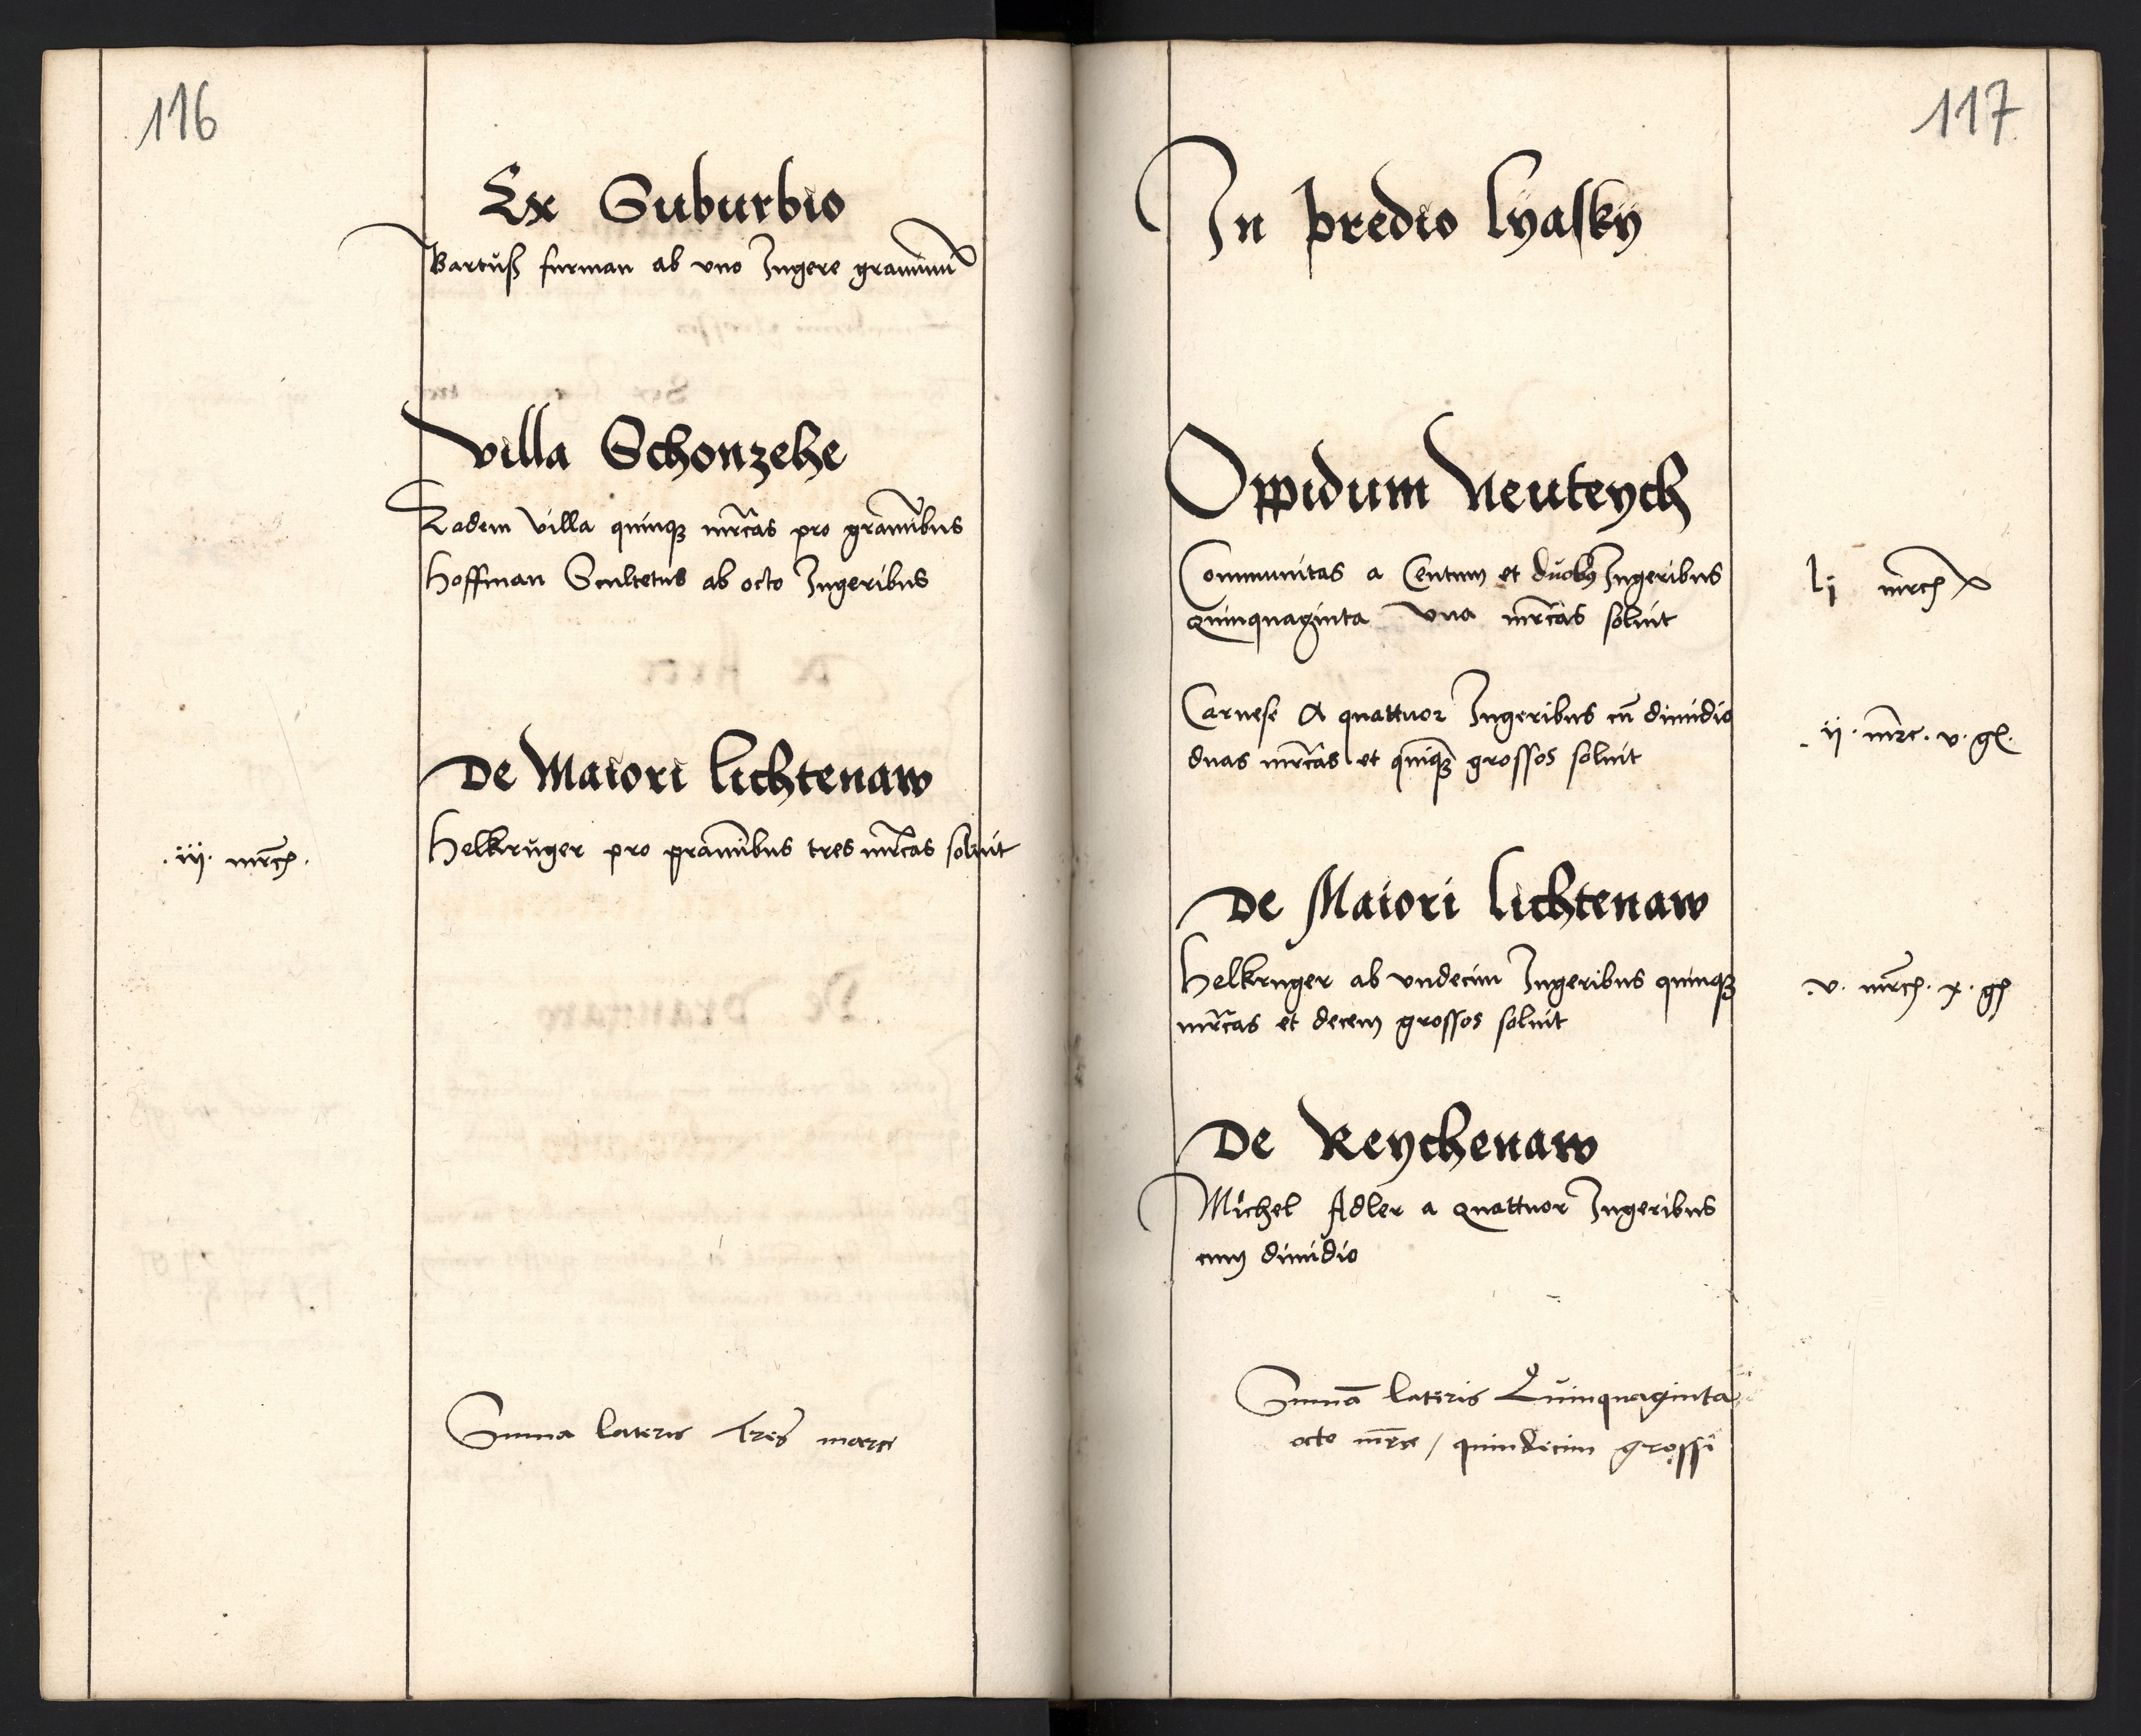 116
Ex Suburbio
Bartuss furman ab vno Iugere graminum
Villa Schonzehe
Eadem villa quinque mrcas pro graminibus
Hoffman Scultetus ab octo Iugeribus
De Maiori Lichtenaw
.iij. mrc.
Helkruger pro graminibus tres mrcas soluit
Summa lateris Tres marce
117
In predio Lyasky
Oppidum Neuteych
Communitas a Centum et duobus Iugeribus
Quinquaginta vna mrcas soluit
lj mrc
Carnese A quattuor Iugeribus cu dimidio
duas mrcas et quinque grossos soluit
.ij. mrc. v. g.
De Maiori Lichtenaw
Helkruger ab vndecim Iugeribus quinque
mrcas et decem grossos soluit
.v. mrc. x. g
De Reychenaw
Michel Adler a quattuor Iugeribus
cum dimidio
Summa lateris Quinquaginta
octo mrce / quindecim grossi